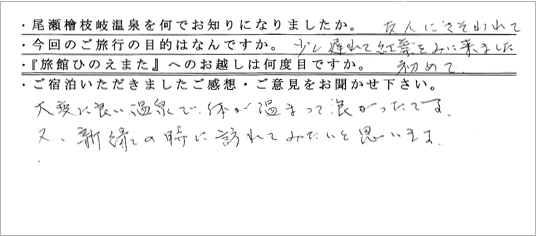 ・尾瀬檜枝岐温泉を何でお知りになりましたか。 友人にさそわれて
・今回のご旅行の目的はなんですか。 少し遅れて紅葉をみに来ました
・『旅館ひのえまた』へのお越しは何度目ですか。 初めて
・ご宿泊いただきましたご感想・ご意見をお聞かせ下さい。
大変に良い温泉で、体が温まって良かったです。
又、新緑の時に訪れてみたいと思います。